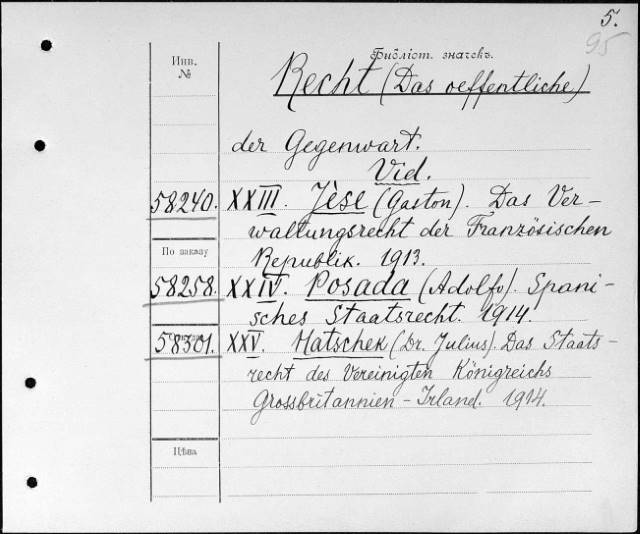 5.
95
Инв.
№
Библіот. значекъ.
Recht (Das oeffentliche)
der Gegenwart.
Vid.
58240. XXIII. Jèse (Gaston). Das Ver-
waltungsrecht der Französischen
По заказу
Republik. 1913.
58258. XXIV. Posada (Adolfo). Spani-
sches Staatsrecht. 1914.
58301. XXV. Hatschek (Dr. Julius). Das Staats-
recht des Vereinigten Königreichs
Grossbritannien-Irland. 1914.
Цѣна